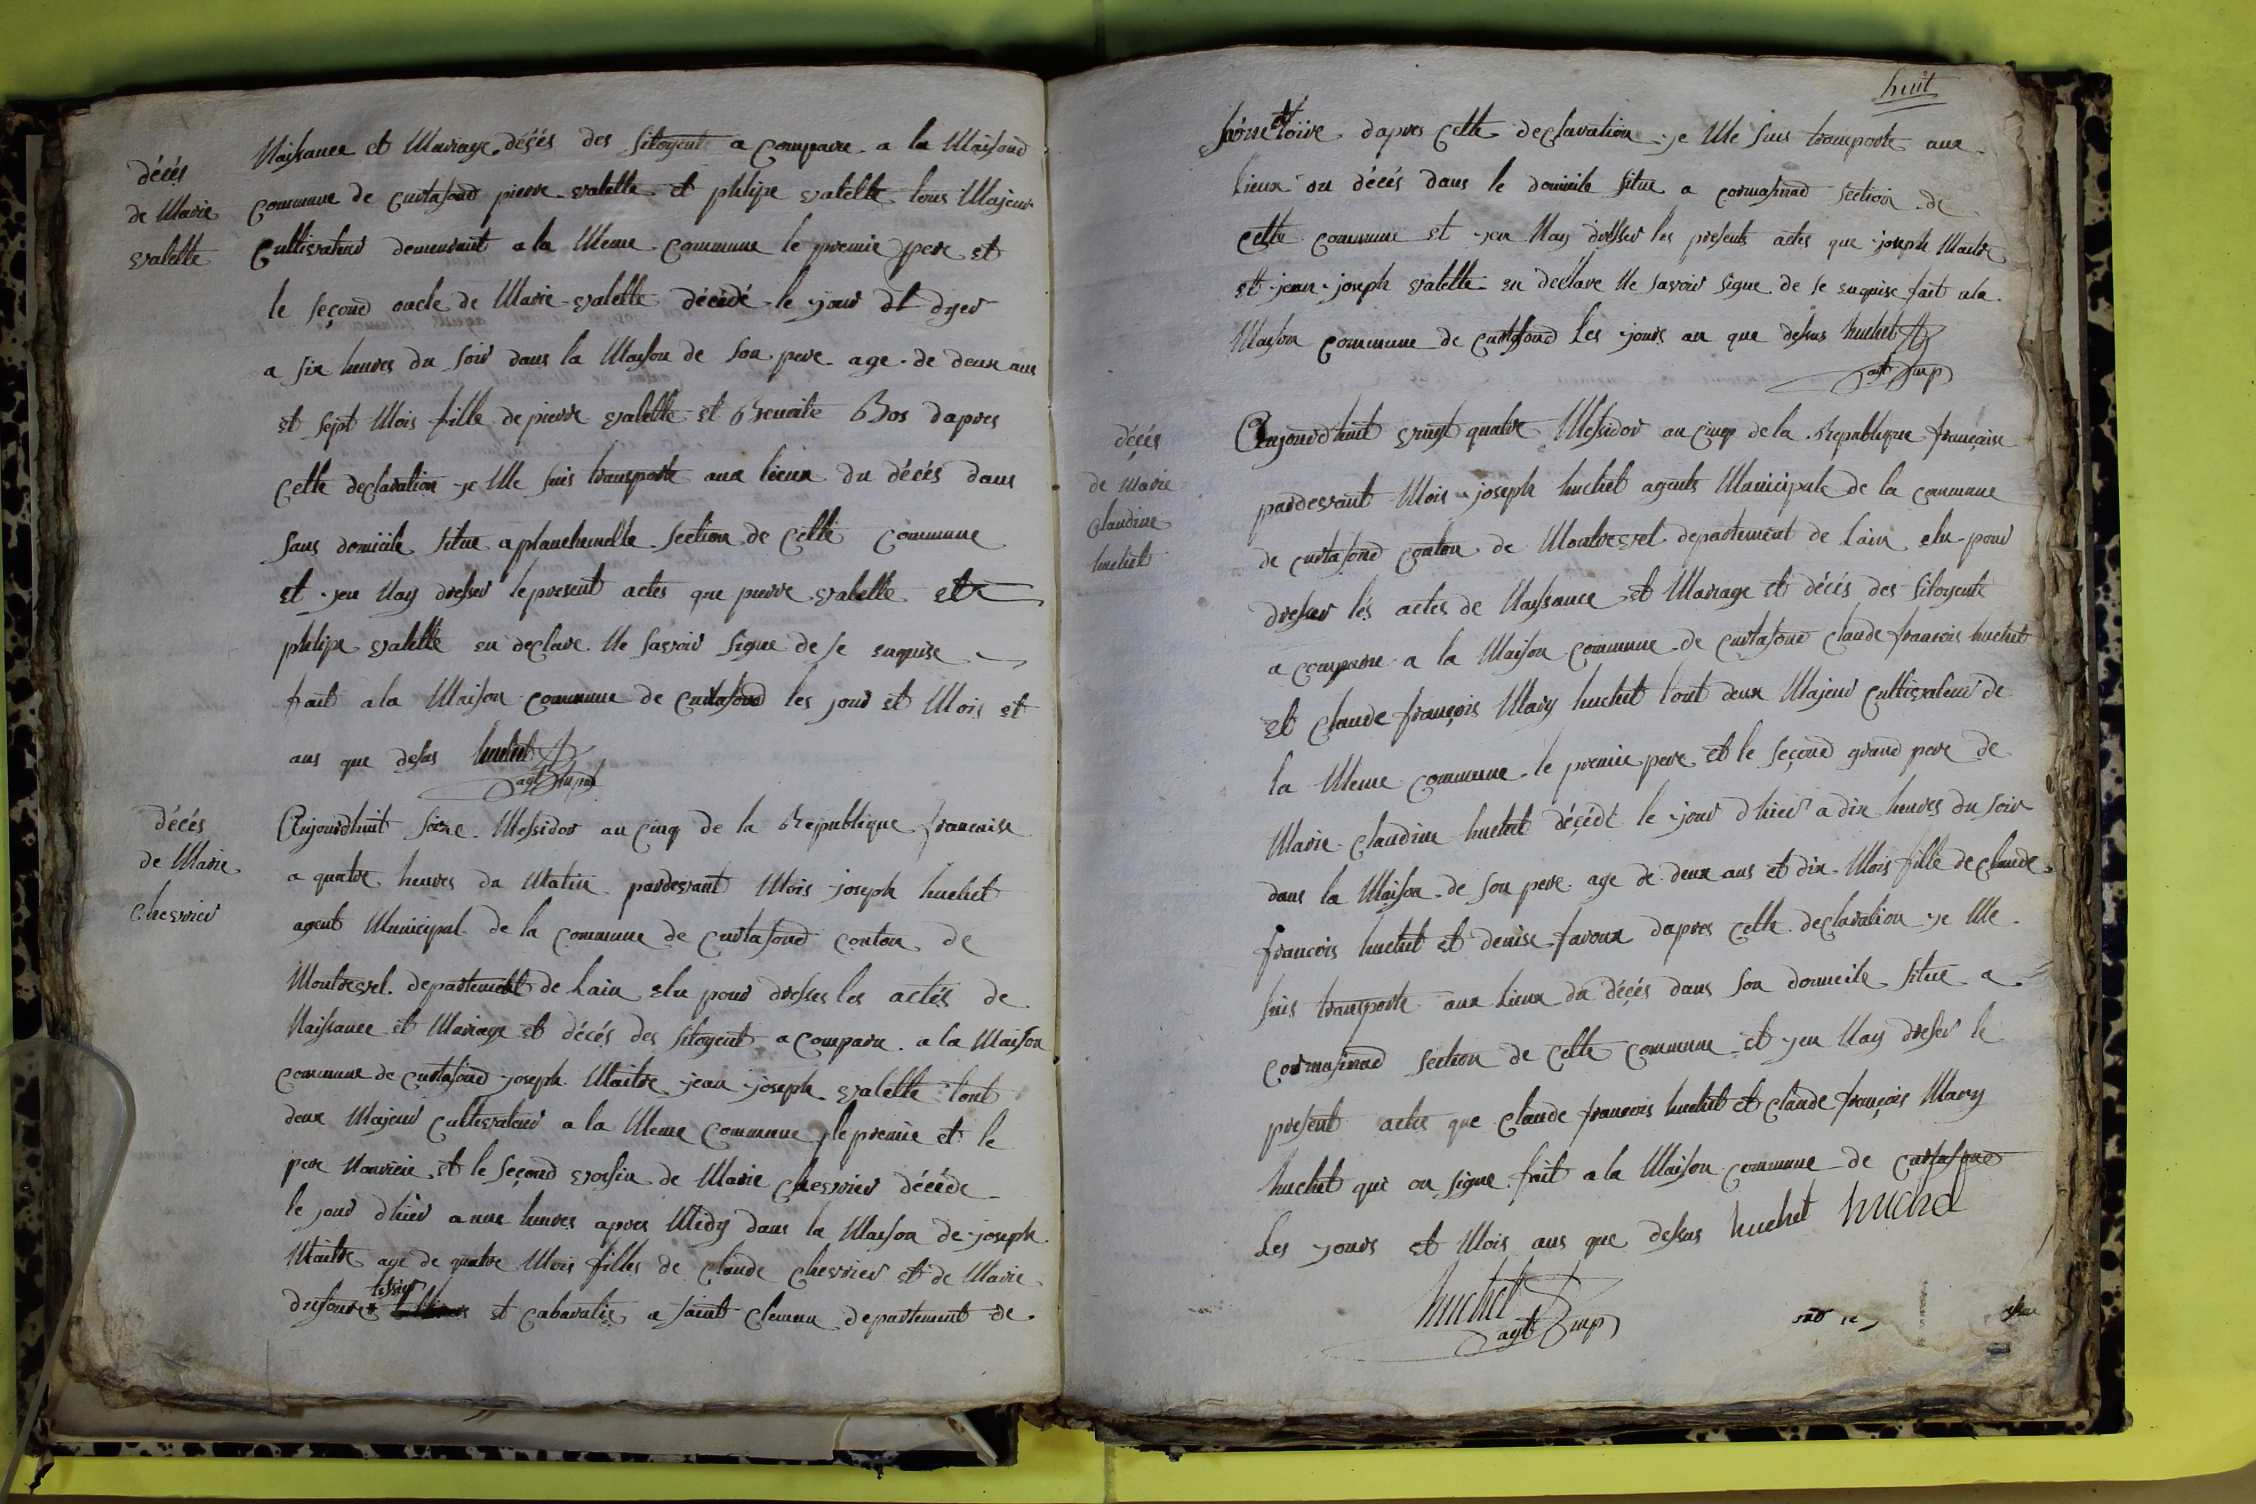 décés
de Marie
valette
Naissance et Mariage décés des sitoyent a Comparu a la Maisond
Commune de Curtafond pierre valette et phlipe valette tous Majeur
Cultivateur demeurant a la Meme Commune le premie pere et
le segond oncle de Marie valette décédé le jour
a six heures du soir dans la Maison de son pere age de deux ans
et sept Mois fille de pierre valette et Benoite Bos dapres
Cette declaration je Me suis transporte aux lieux du décés dans
sans domicile situe a planchemelle section de Cette Commune
et jen Nay dresser le present actes que pierre valette et
phlipe valette en declare Ne savoir signe de se enquise
fait a la Maison Commune de Curtafond les jour et Mois et
ans que desus huchet
agt Mupal
décés
de Marie
Chevrier
Aujourdhuit seize Messidor an Cinq de la Republique francaise
a quatre heures du Matin pardevant Mois joseph huchet
agent Municipal de la Commune de Curtafond Conton de
Montrevel departement de Lain elu pour dresser les actés de
Naissance et Mariage et décés des sitoyent a Comparu a la Maison
Commune de Curtafond joseph Maitre jean joseph valette tout
deux Majeur Cultivateur a la Meme Commune le premie et le
pere Nouricie et le segond voisin de Marie Chevrier décéde
le jour dhier a une heures apres Midy dans la Maison de joseph
Maitre age de quatre Mois filles de Claude Chevrier et de Marie
dufour tessier et Cabaratie a saint Clemen departement de
huit
saone et Loire dapres Cette declaration je Me suis transporte aux
Lieux du décés dans le domicile situe a cormasinad section de
Cette Commune et jen Nay dresser les presents actes que joseph Maitre
et jean joseph valette en déclare Ne savoir signe de se enquise fait a la
Maison Commune de Curtafond Les jours an que desus huchet
agt Mup
décés
de Marie
Claudine
huchet
Aujourdhuit vingt quatre Messidor an Cinq de la Republique française
pardevant Mois joseph huchet agents Municipale de la Commune
de Curtafond Conton de Montrevel departement de Lain elu pour
dresser lés actes de Naissance et Mariage et décés des sitoyents
a Comparu a la Maison Commune de Curtafond Claude francois huchet
et Claude françois Mary huchet tout deux Majeur Cultivateur de
la Meme Commune le premie pere et le segond grand pere de
Marie Claudine huchet décédé le jour dhier a dix heures du soir
dans la Maison de son pere age de deux ans et dix Mois fille de Claude
francois huchet et denise favoux dapres Cette declaration je Me
suis transporte aux Lieux du décés dans son domicile situe a
Cormasinad section de Cette Commune et jen Nay dresser le
present actes que Claude francois huchet et Claude françois Mary
huchet qui on signe fait a la Maison Commune de Curtafond
Les jours et Mois ans que desus huchet huchet
huchet
agt Mup